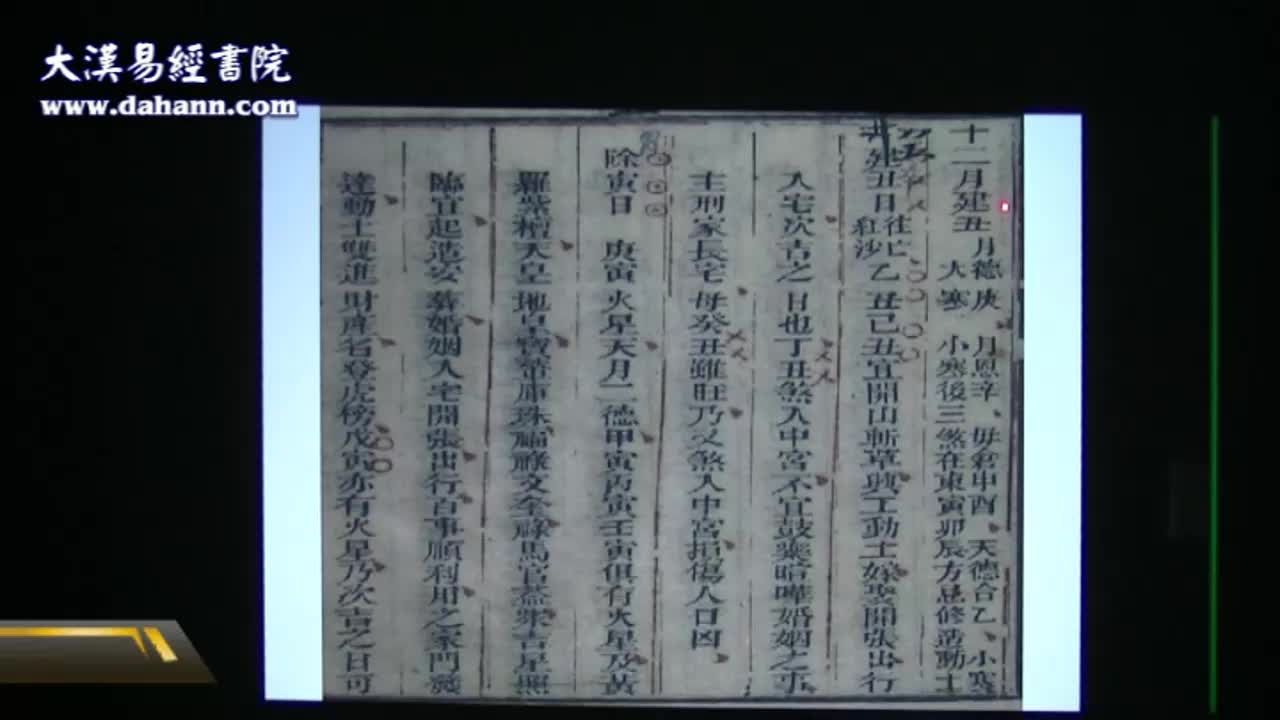 大漢易經書院
www.dahann.com
十二月建丑 月德庚 月恩辛、母倉申酉、天德合乙、小寒
大寒 小寒後三煞在東寅卯辰方忌修造動土
建丑日往亡紅沙乙丑己丑宜開山斬草興工動土嫁娶開張出行
入宅次吉之日也丁丑煞入中宮不宜鼓樂喧嘩婚姻之事
主刑家長宅母癸丑雖旺乃又煞入中宮損傷人口凶
除寅日 庚寅火星天月二德甲寅丙寅壬寅俱有火星及黃
羅紫檀天皇地皇寶輦庫珠福祿文全祿馬官蓋眾吉星照
臨宜起造安葬婚姻入宅開張出行百事順利用之家門發
達動土雙進財產名登虎榜戊寅亦有火星乃次吉之日可